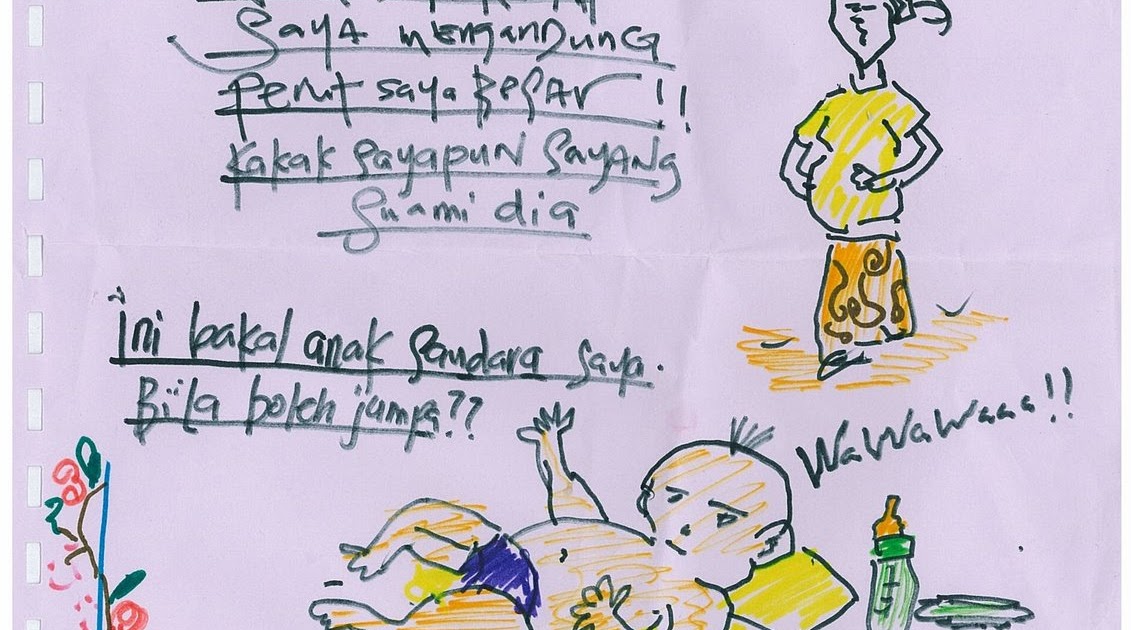 saya mengandung
Perut saya BESAR !!
Kakak sayapun sayang
suami dia
Ini bakal anak saudara saya.
Bila boleh jumpa??
WaWaWaaa!!